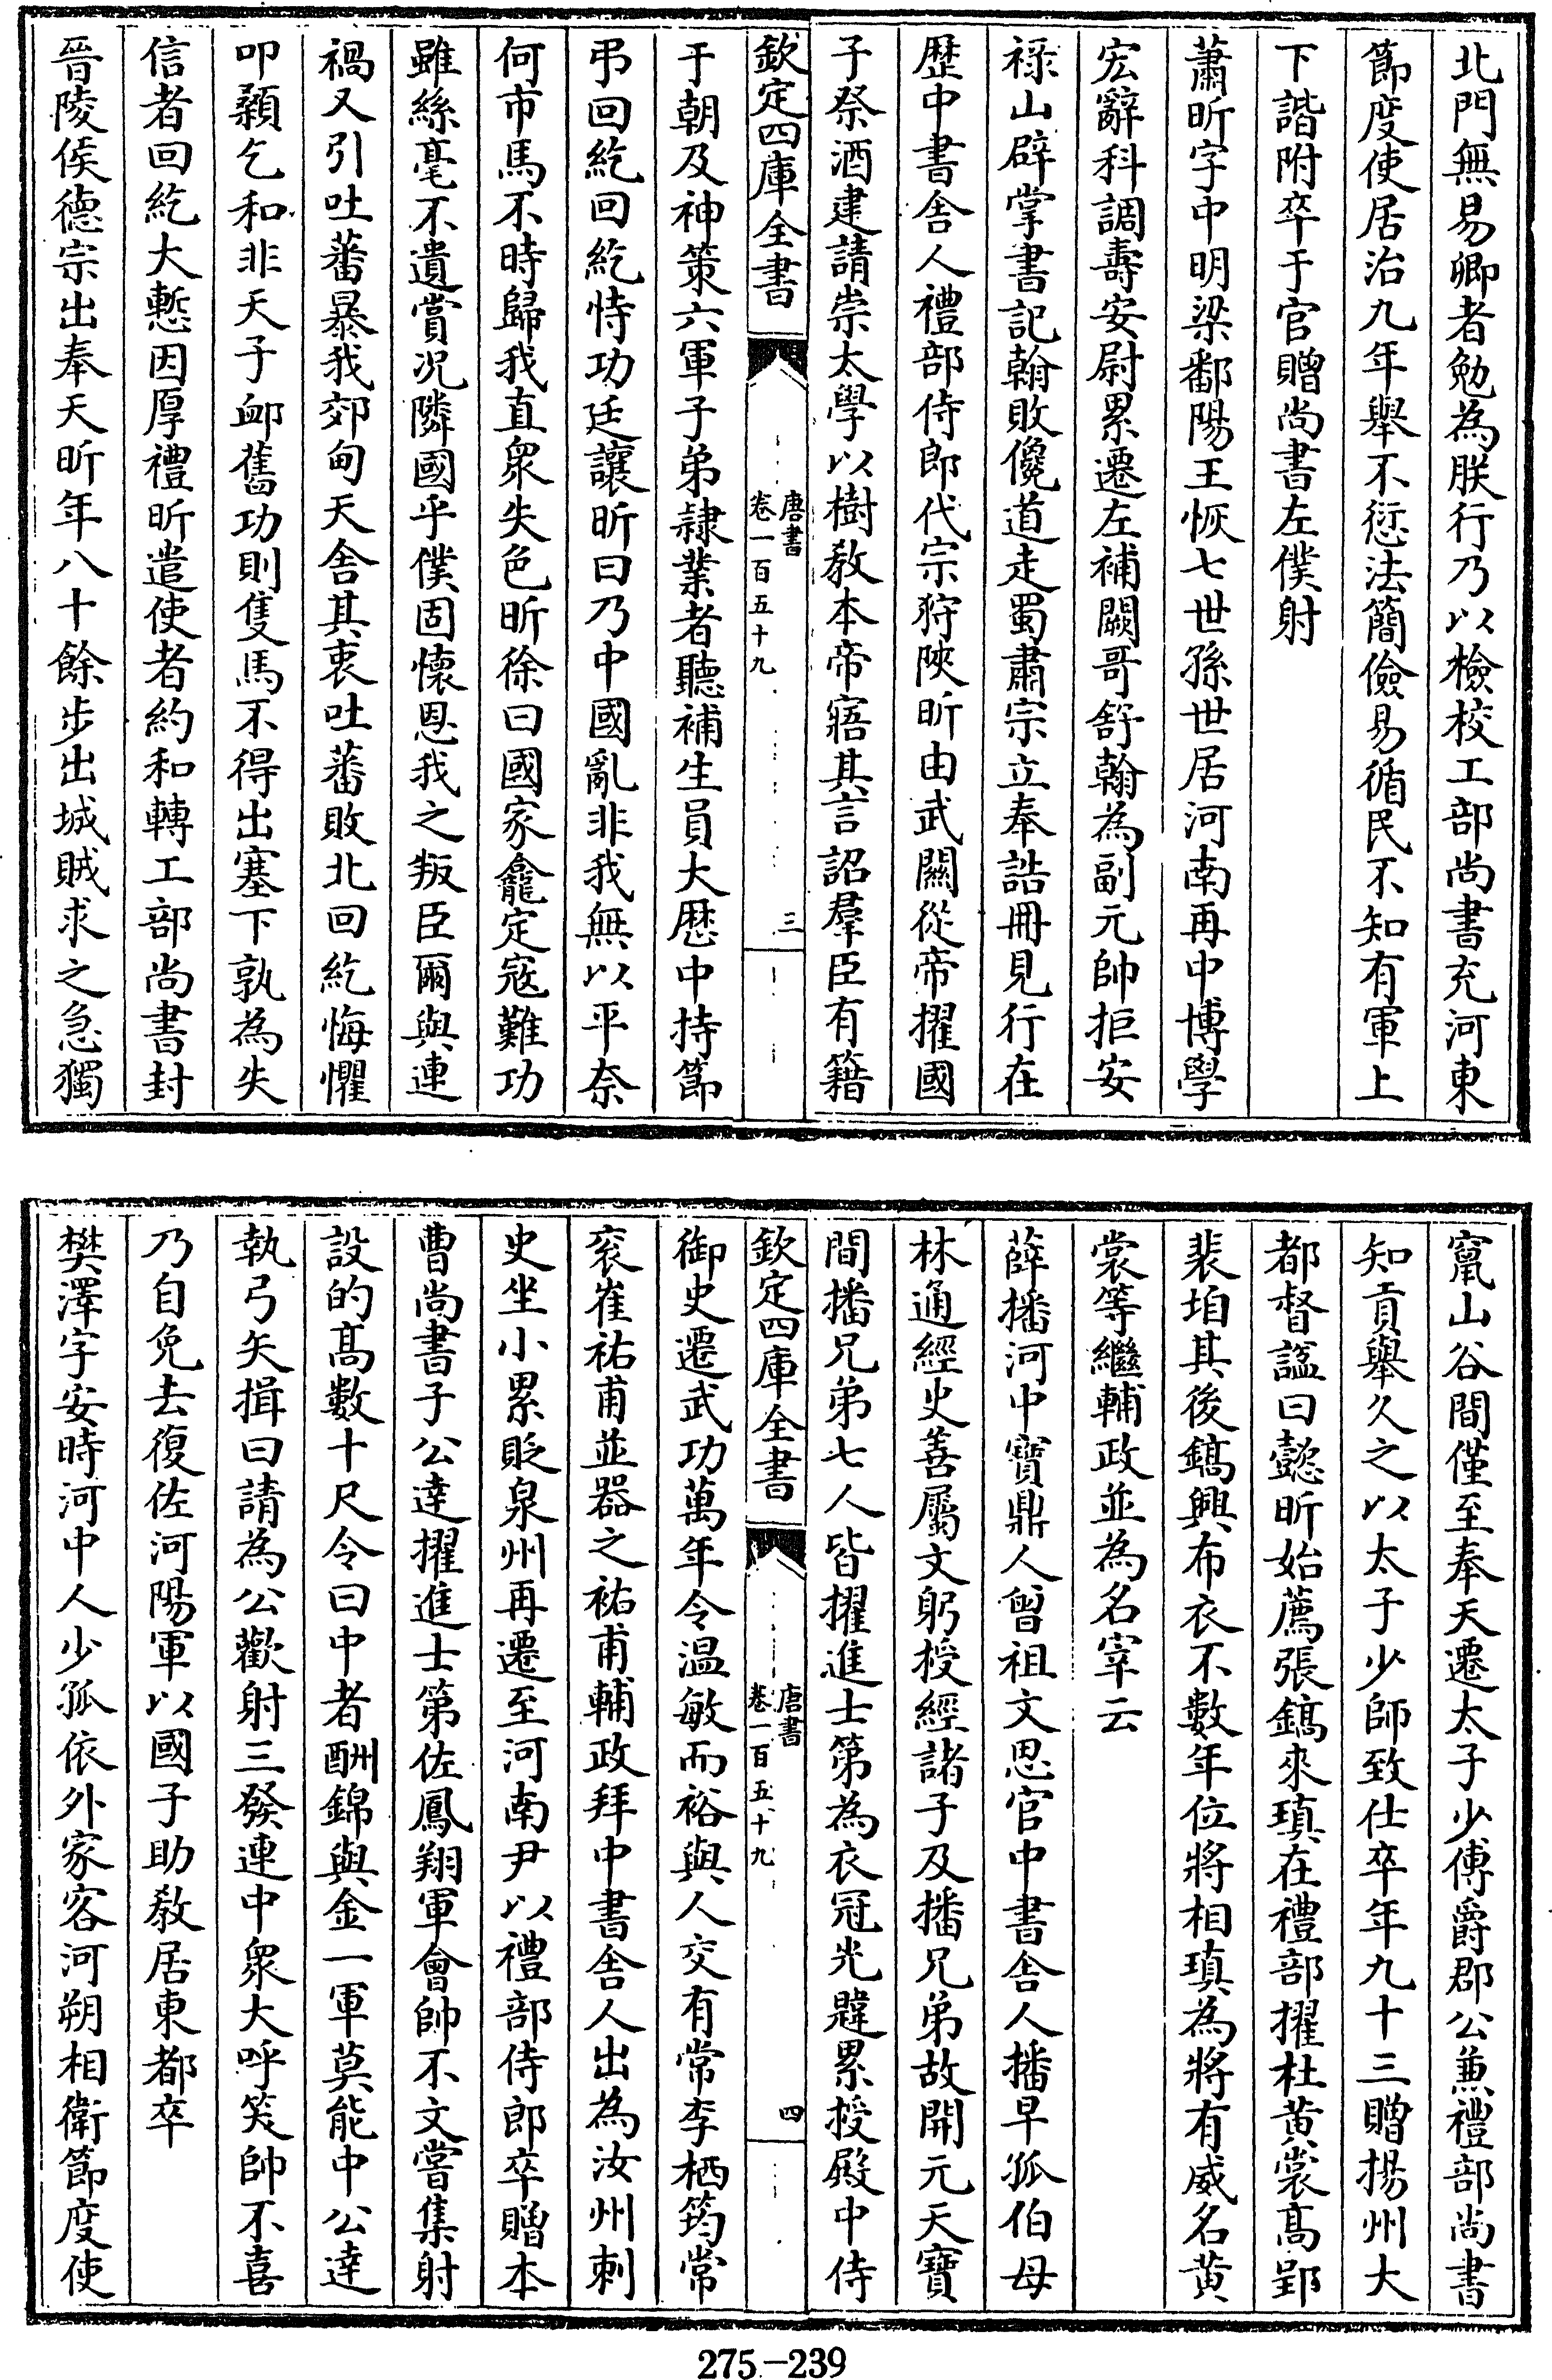 北門無易卿者勉為朕行乃以檢校工部尚書充河東
節度使居治九年舉不愆法簡儉易循民不知有軍上
下諧附卒于官贈尚書左僕射
蕭昕字中明梁鄱陽王恢七世孫世居河南再中博學
宏辭科調壽安尉累遷左補闕哥舒翰為副元帥拒安
祿山辟掌書記翰敗儳道走蜀肅宗立奉誥冊見行在
歴中書舍人禮部侍郎代宗狩陜昕由武關從帝擢國
子祭酒建請崇太學以樹教本帝寤其言詔羣臣有籍
欽定四庫全書
唐書
卷一百五十九
三
于朝及神策六軍子弟隷業者聽補生員大歴中持節
弔回紇回紇恃功廷讓昕曰乃中國亂非我無以平奈
何市馬不時歸我直衆失色昕徐曰國家龕定寇難功
雖絲毫不遺賞况隣國乎僕固懷恩我之叛臣爾與連
禍又引吐蕃暴我郊甸天舍其衷吐蕃敗北回紇悔懼
叩顙乞和非天子卹舊功則隻馬不得出塞下孰為失
信者回紇大慙因厚禮昕遣使者約和轉工部尚書封
晉陵侯德宗出奉天昕年八十餘步出城賊求之急獨
竄山谷間僅至奉天遷太子少傅爵郡公兼禮部尚書
知貢舉久之以太子少師致仕卒年九十三贈揚州大
都督諡曰懿昕始薦張鎬來瑱在禮部擢杜黄裳髙郢
裴垍其後鎬興布衣不數年位將相瑱為將有威名黄
裳等繼輔政並為名宰云
薛播河中寶鼎人曾祖文思官中書舍人播早孤伯母
林通經史善屬文躬授經諸子及播兄弟故開元天寶
間播兄弟七人皆擢進士第為衣冠光韙累授殿中侍
欽定四庫全書
唐書
卷一百五十九
四
御史遷武功萬年令温敏而裕與人交有常李栖筠常
衮崔祐甫並器之祐甫輔政拜中書舍人出為汝州刺
史坐小累貶泉州再遷至河南尹以禮部侍郎卒贈本
曹尚書子公達擢進士第佐鳳翔軍會帥不文嘗集射
設的髙數十尺令曰中者酬錦與金一軍莫能中公達
執弓矢揖曰請為公歡射三發連中衆大呼笑帥不喜
乃自免去復佐河陽軍以國子助教居東都卒
樊澤字安時河中人少孤依外家客河朔相衛節度使
275-239